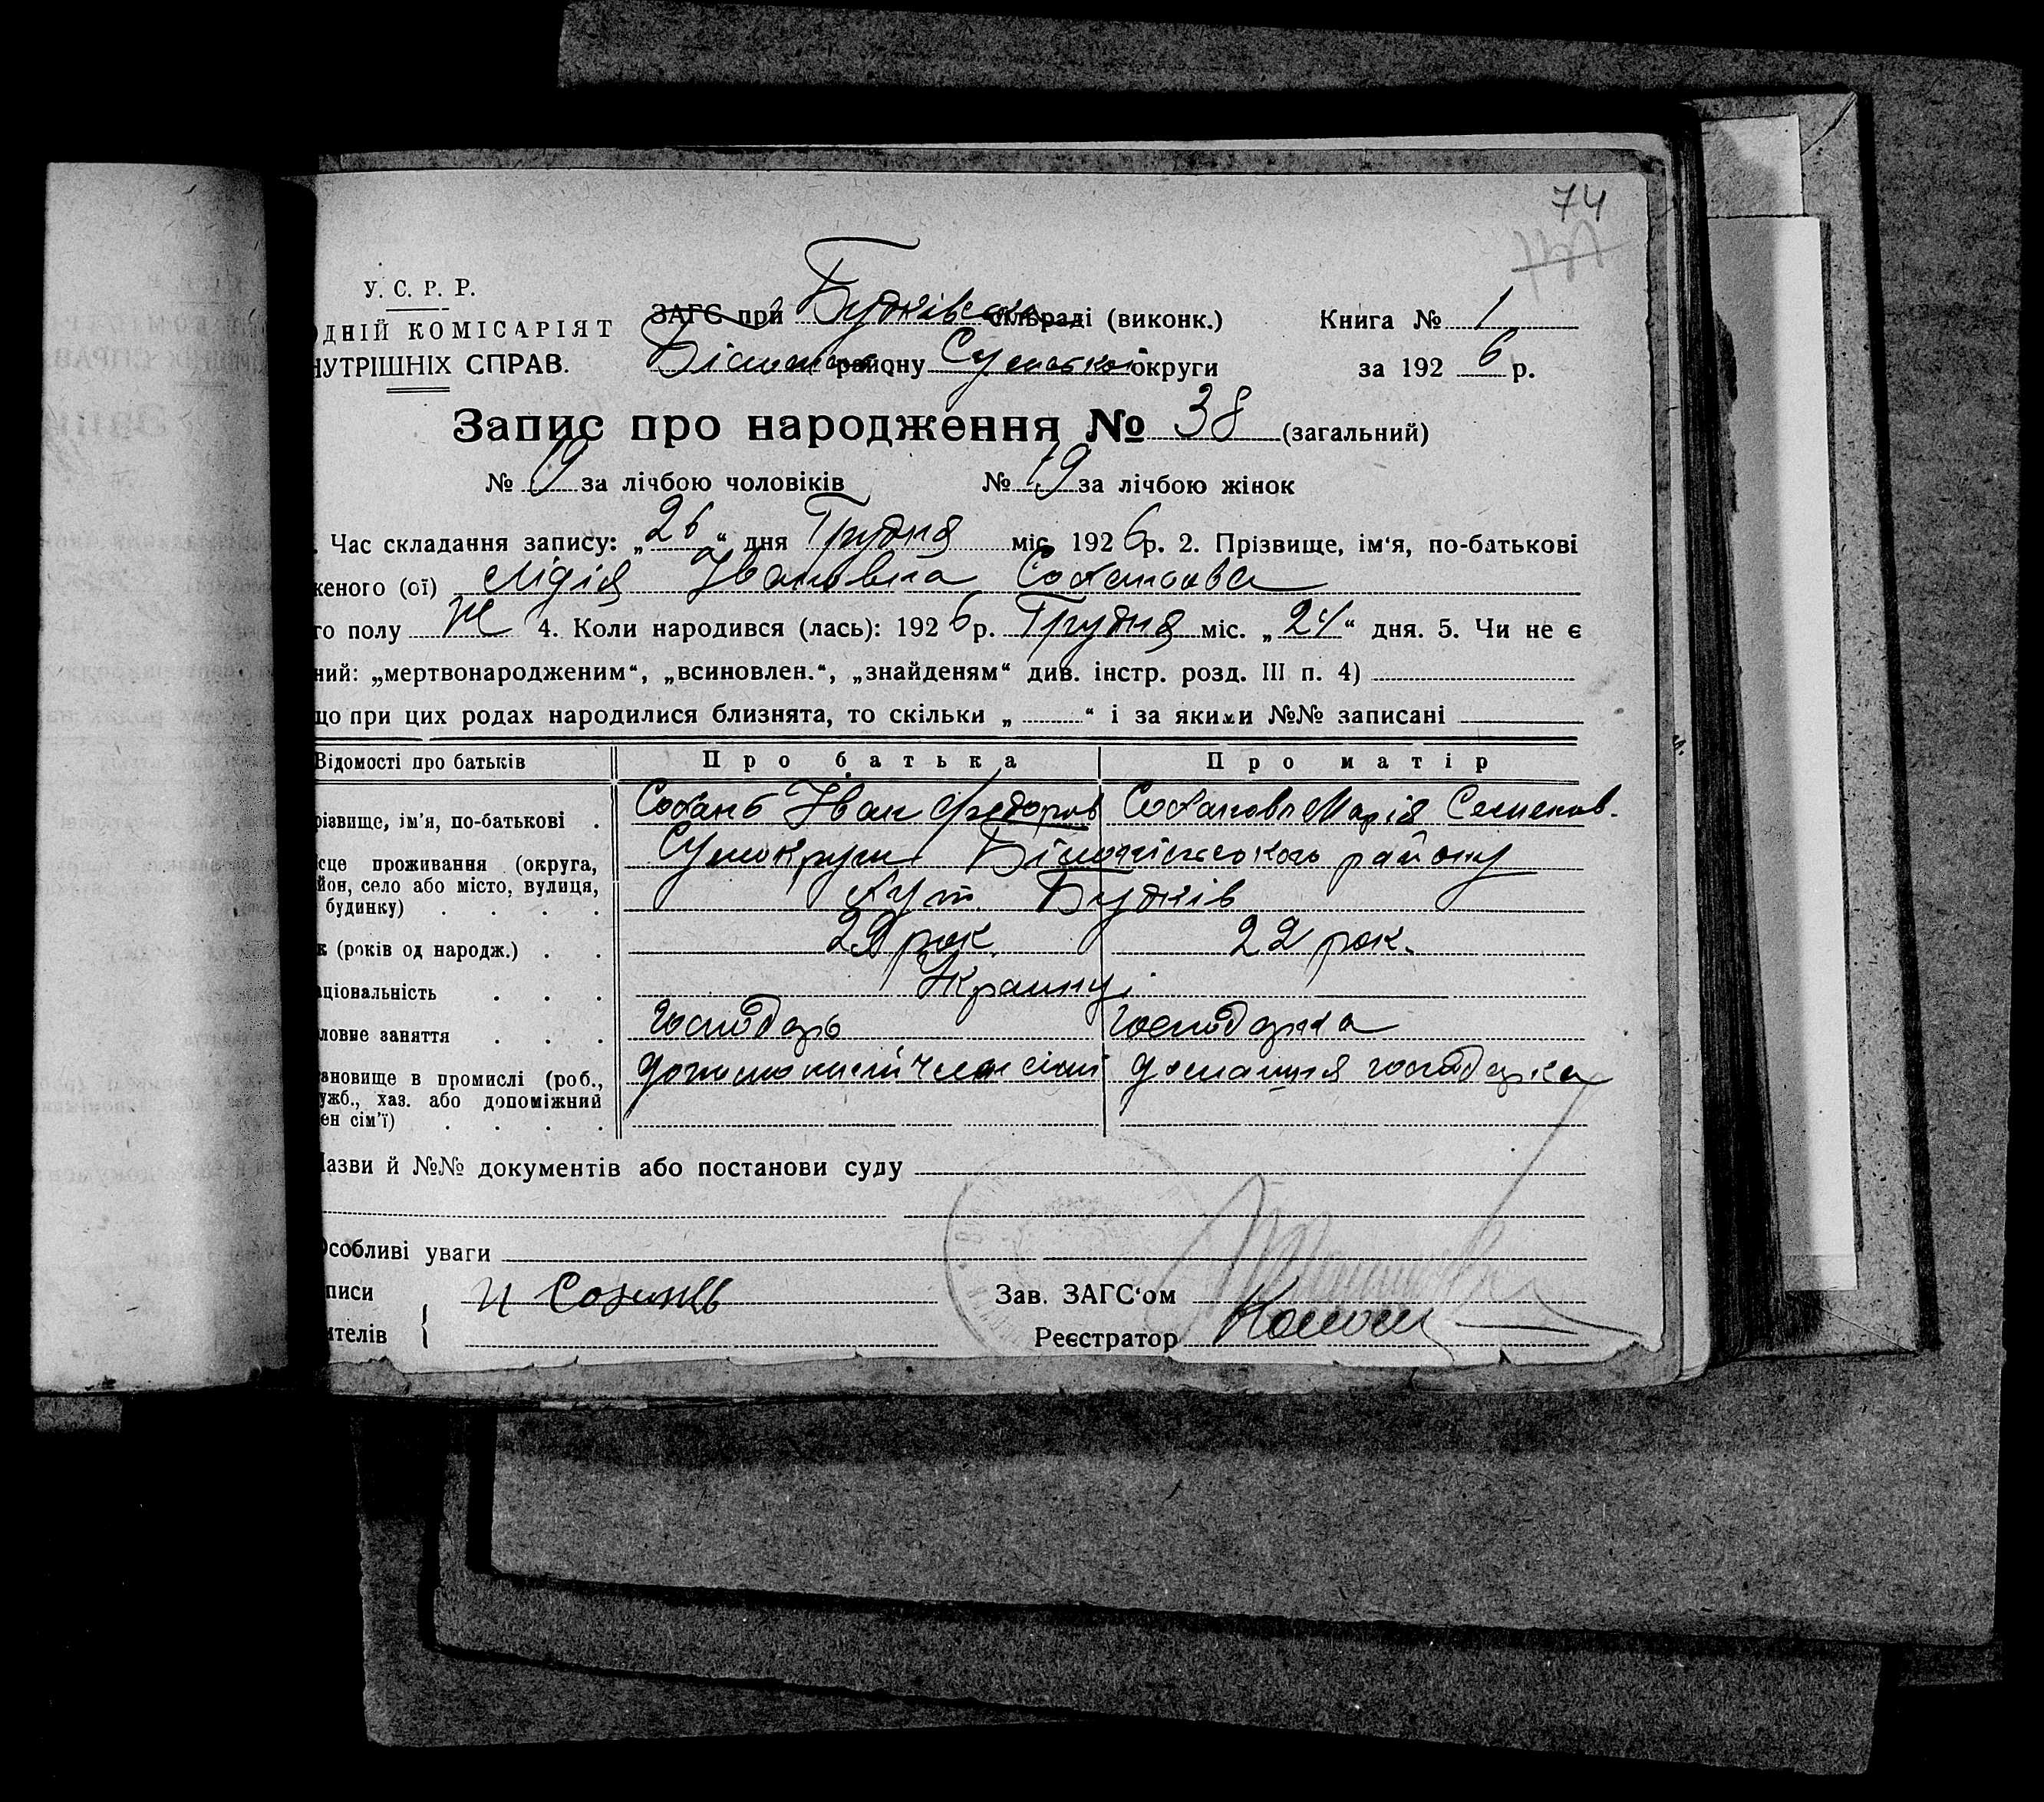 74
У. С. Р. Р.
ОДНІЙ КОМІСАРІЯТ
НУТРІШНІХ СПРАВ.
ЗАГС при Будківськ сільраді (виконк.)
району Сумської округи
Книга № 1
за 1926 р.
Запис про народження № 38 (загальний)
№ 19 за лічбою чоловіків № 19 за лічбою жінок
. Час складання запису: „26“ дня Грудня міс. 1926 р. 2. Прізвище, ім'я, по-батькові
женого (ої) Лідія Івановна
го полу Ж 4. Коли народився (лась): 1926 р. Грудня міс. „24“ дня. 5. Чи не є
ний: „мертвонародженим“, „всиновлен.“, „знайденям“ див. інстр. розд. III п. 4)
що при цих родах народилися близнята, то скільки „ “ і за якими №№ записані
Відомості про батьків Про батька Про матір
різвище, ім'я, по-батькові . Іван Федоров Марія Семенов.
сце проживання (округа, району
йон, село або місто, вулиця, Хут. Будків
будинку) . . . .
к (років од народж.) . . 29 рок. 22 рок.
аціональність . . . Украинці
ловне заняття . . . Господарь Господарка
ановище в промислі (роб., допоможний член сімї домашня господарка
ужб., хаз. або допоміжний
ен сім'ї) . . . .
Назви й №№ документів або постанови суду
Особливі уваги
писи
ителів
Зав. ЗАГС'ом
Реєстратор